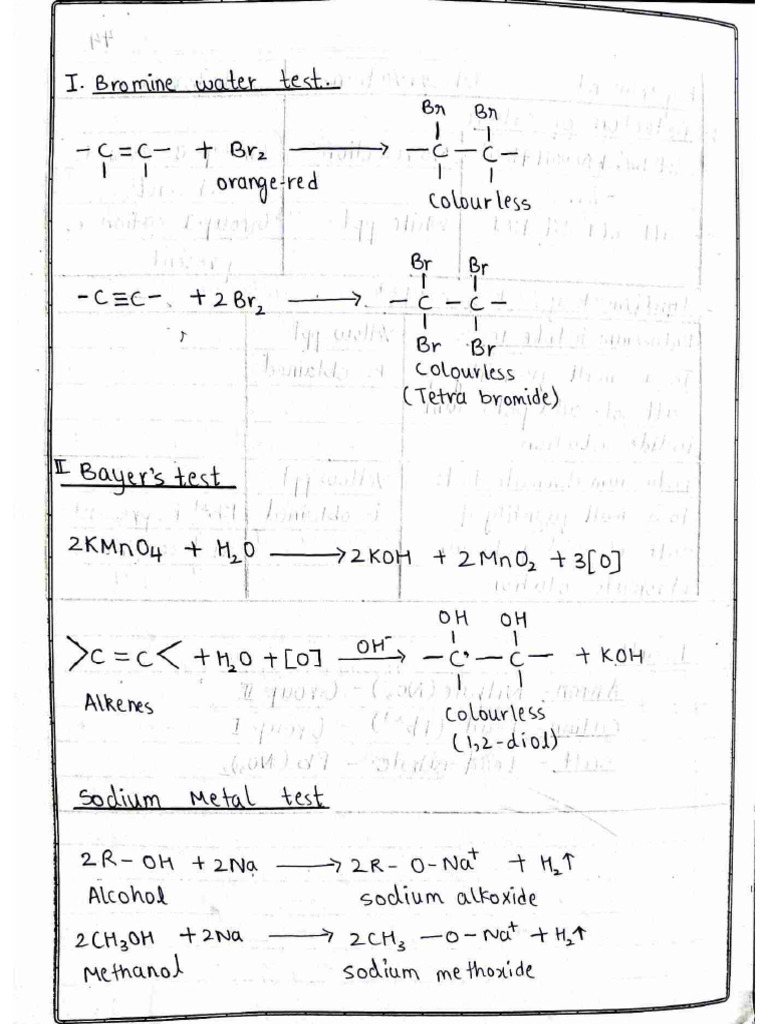 I. Bromine water test.
Br Br
-C=C- + Br₂ ⟶ -C-C-
orange-red
Colourless
Br Br
-C≡C- + 2Br₂ ⟶ -C-C-
Br Br
Colourless
(Tetra bromide)
II Bayer's test
2KMnO₄ + H₂O ⟶ 2KOH + 2MnO₂ + 3[O]
OH OH
>C=C< + H₂O + [O] OH⁻⟶ -C-C- + KOH
Alkenes
Colourless
(1,2-diol)
Sodium Metal test
2R-OH + 2Na ⟶ 2R-O-Na⁺ + H₂↑
Alcohol sodium alkoxide
2CH₃OH + 2Na ⟶ 2CH₃-O-Na⁺ + H₂↑
Methanol sodium methoxide